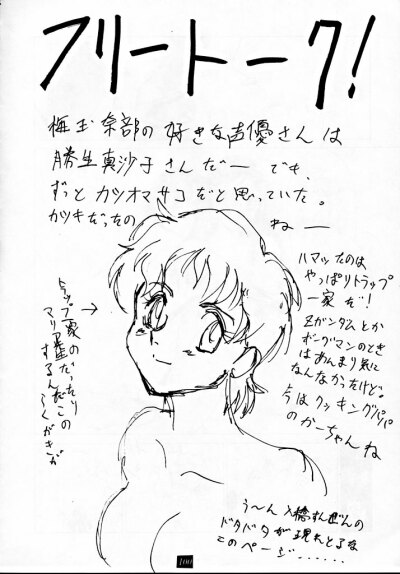 フリートーク!
梅玉奈部の好きな声優さんは
勝生真沙子さんだー でも、
ずっとカツオマサコだと思っていた。
カツキだったの
ねー
ハマッたのは
やっぱりトラップ
一家だ!
Zガンダムとか
ボーグマンのとき
はあんまり気に
なんなかったけど。
今はクッキングパパ
のかーちゃんね
トラップ一家の
マリア
だったり
するんだこの
らくがきが
→
う〜ん
ドタバタが現れとるな
このページ……
100